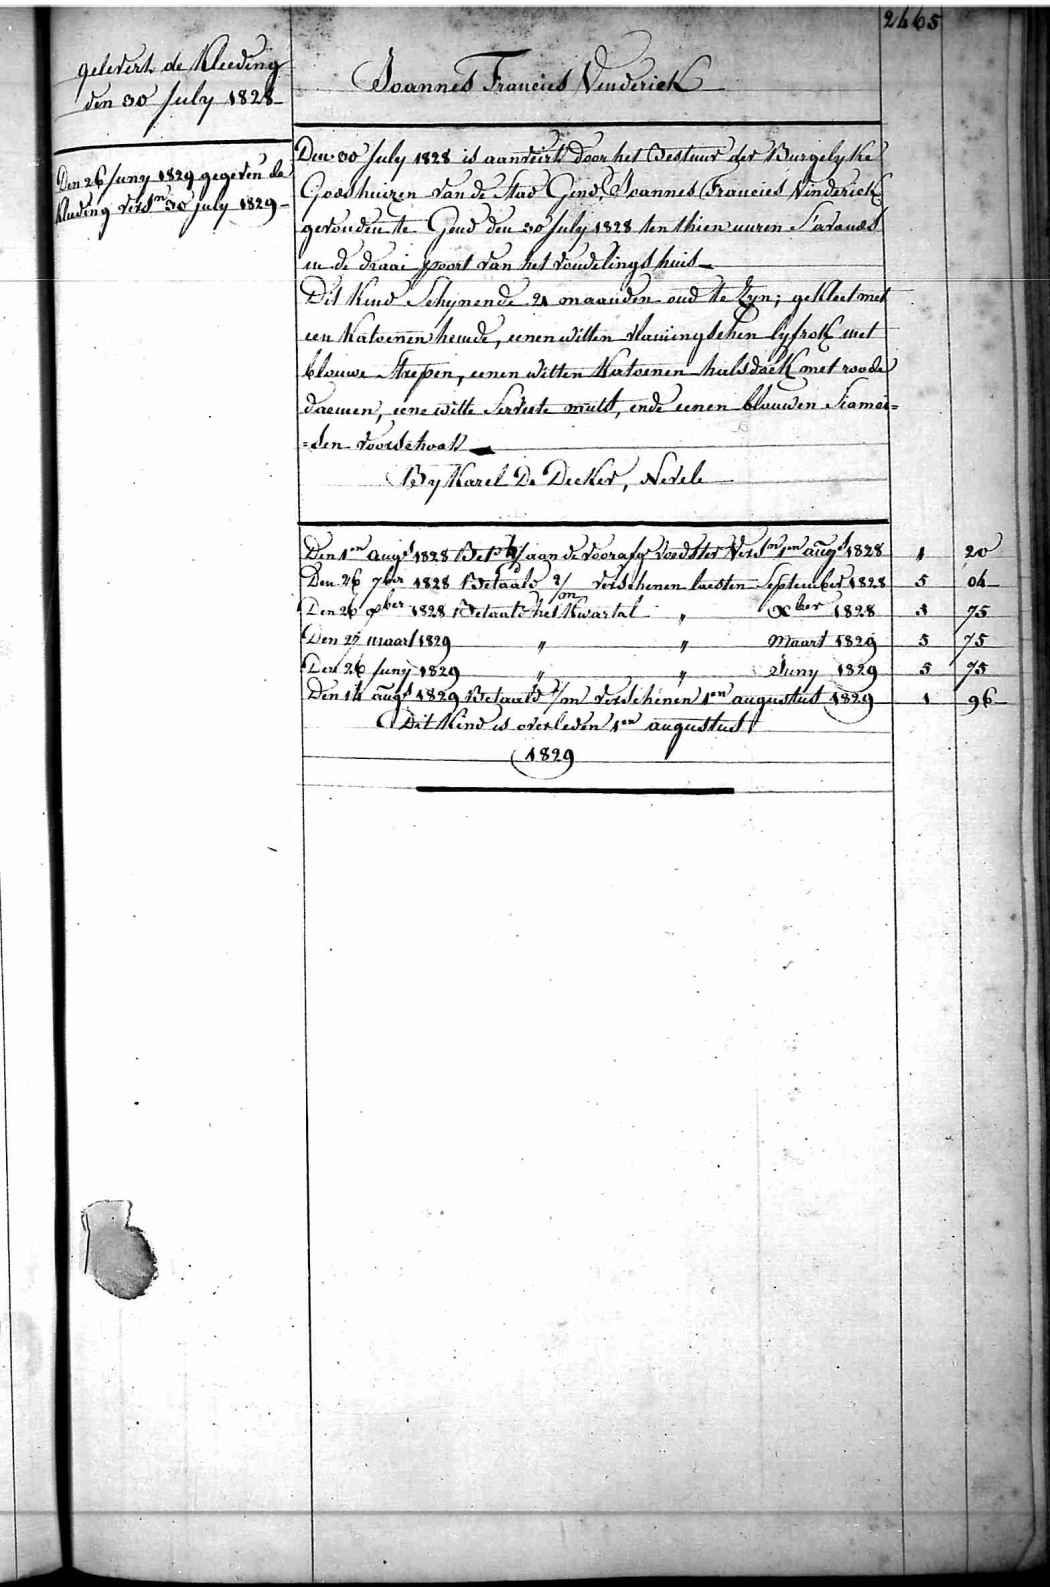 2465
gelevert de Kleeding
den 30 July 1828
Joannes Francies Venderick
Den 26 Juny 1829 gegeven de
kleeding versn 30 july 1829
Den 30 July 1828 is aanveirt door het Bestuur der Burgelyke
Godshuizen van de Stad Gend, Joannes Francies Vinderick
gevonden te Gend den 30 July 1828 ten thien uuren S'avands
in de draai poort van het vondelings huis
Dit Kind Schynende 21 maanden oud te Zyn; gekleet met
een Katoenen hemde, eenen witten vlaemingschen lyfrok met
blouwe Strepen, eenen witten Katoenen halsdoek met roode
daemen, eene witte Serviete muts, ende eenen blauwen Siamoi=
=sen voorschoot
By Karel De Decker, Nevele
Den 1en augt 1828 Bet aan de voorafg voedster Versn 1en augt 1828 1 20
Den 26 7ber 1828 Betaald 2/m verschenen laesten September 1828 5 04
Den 26 Xber 1828 Betaald het Kwartal " Xber 1828 5 75
Den 27 maart 1829 " " Maart 1829 5 75
Den 26 Juny 1829 " " Juny 1829 5 75
Den 14 augt 1829 Betaald 1/m verschenen 1en augustus 1829 1 96
Dit Kind is overleden 1en augustus
1829